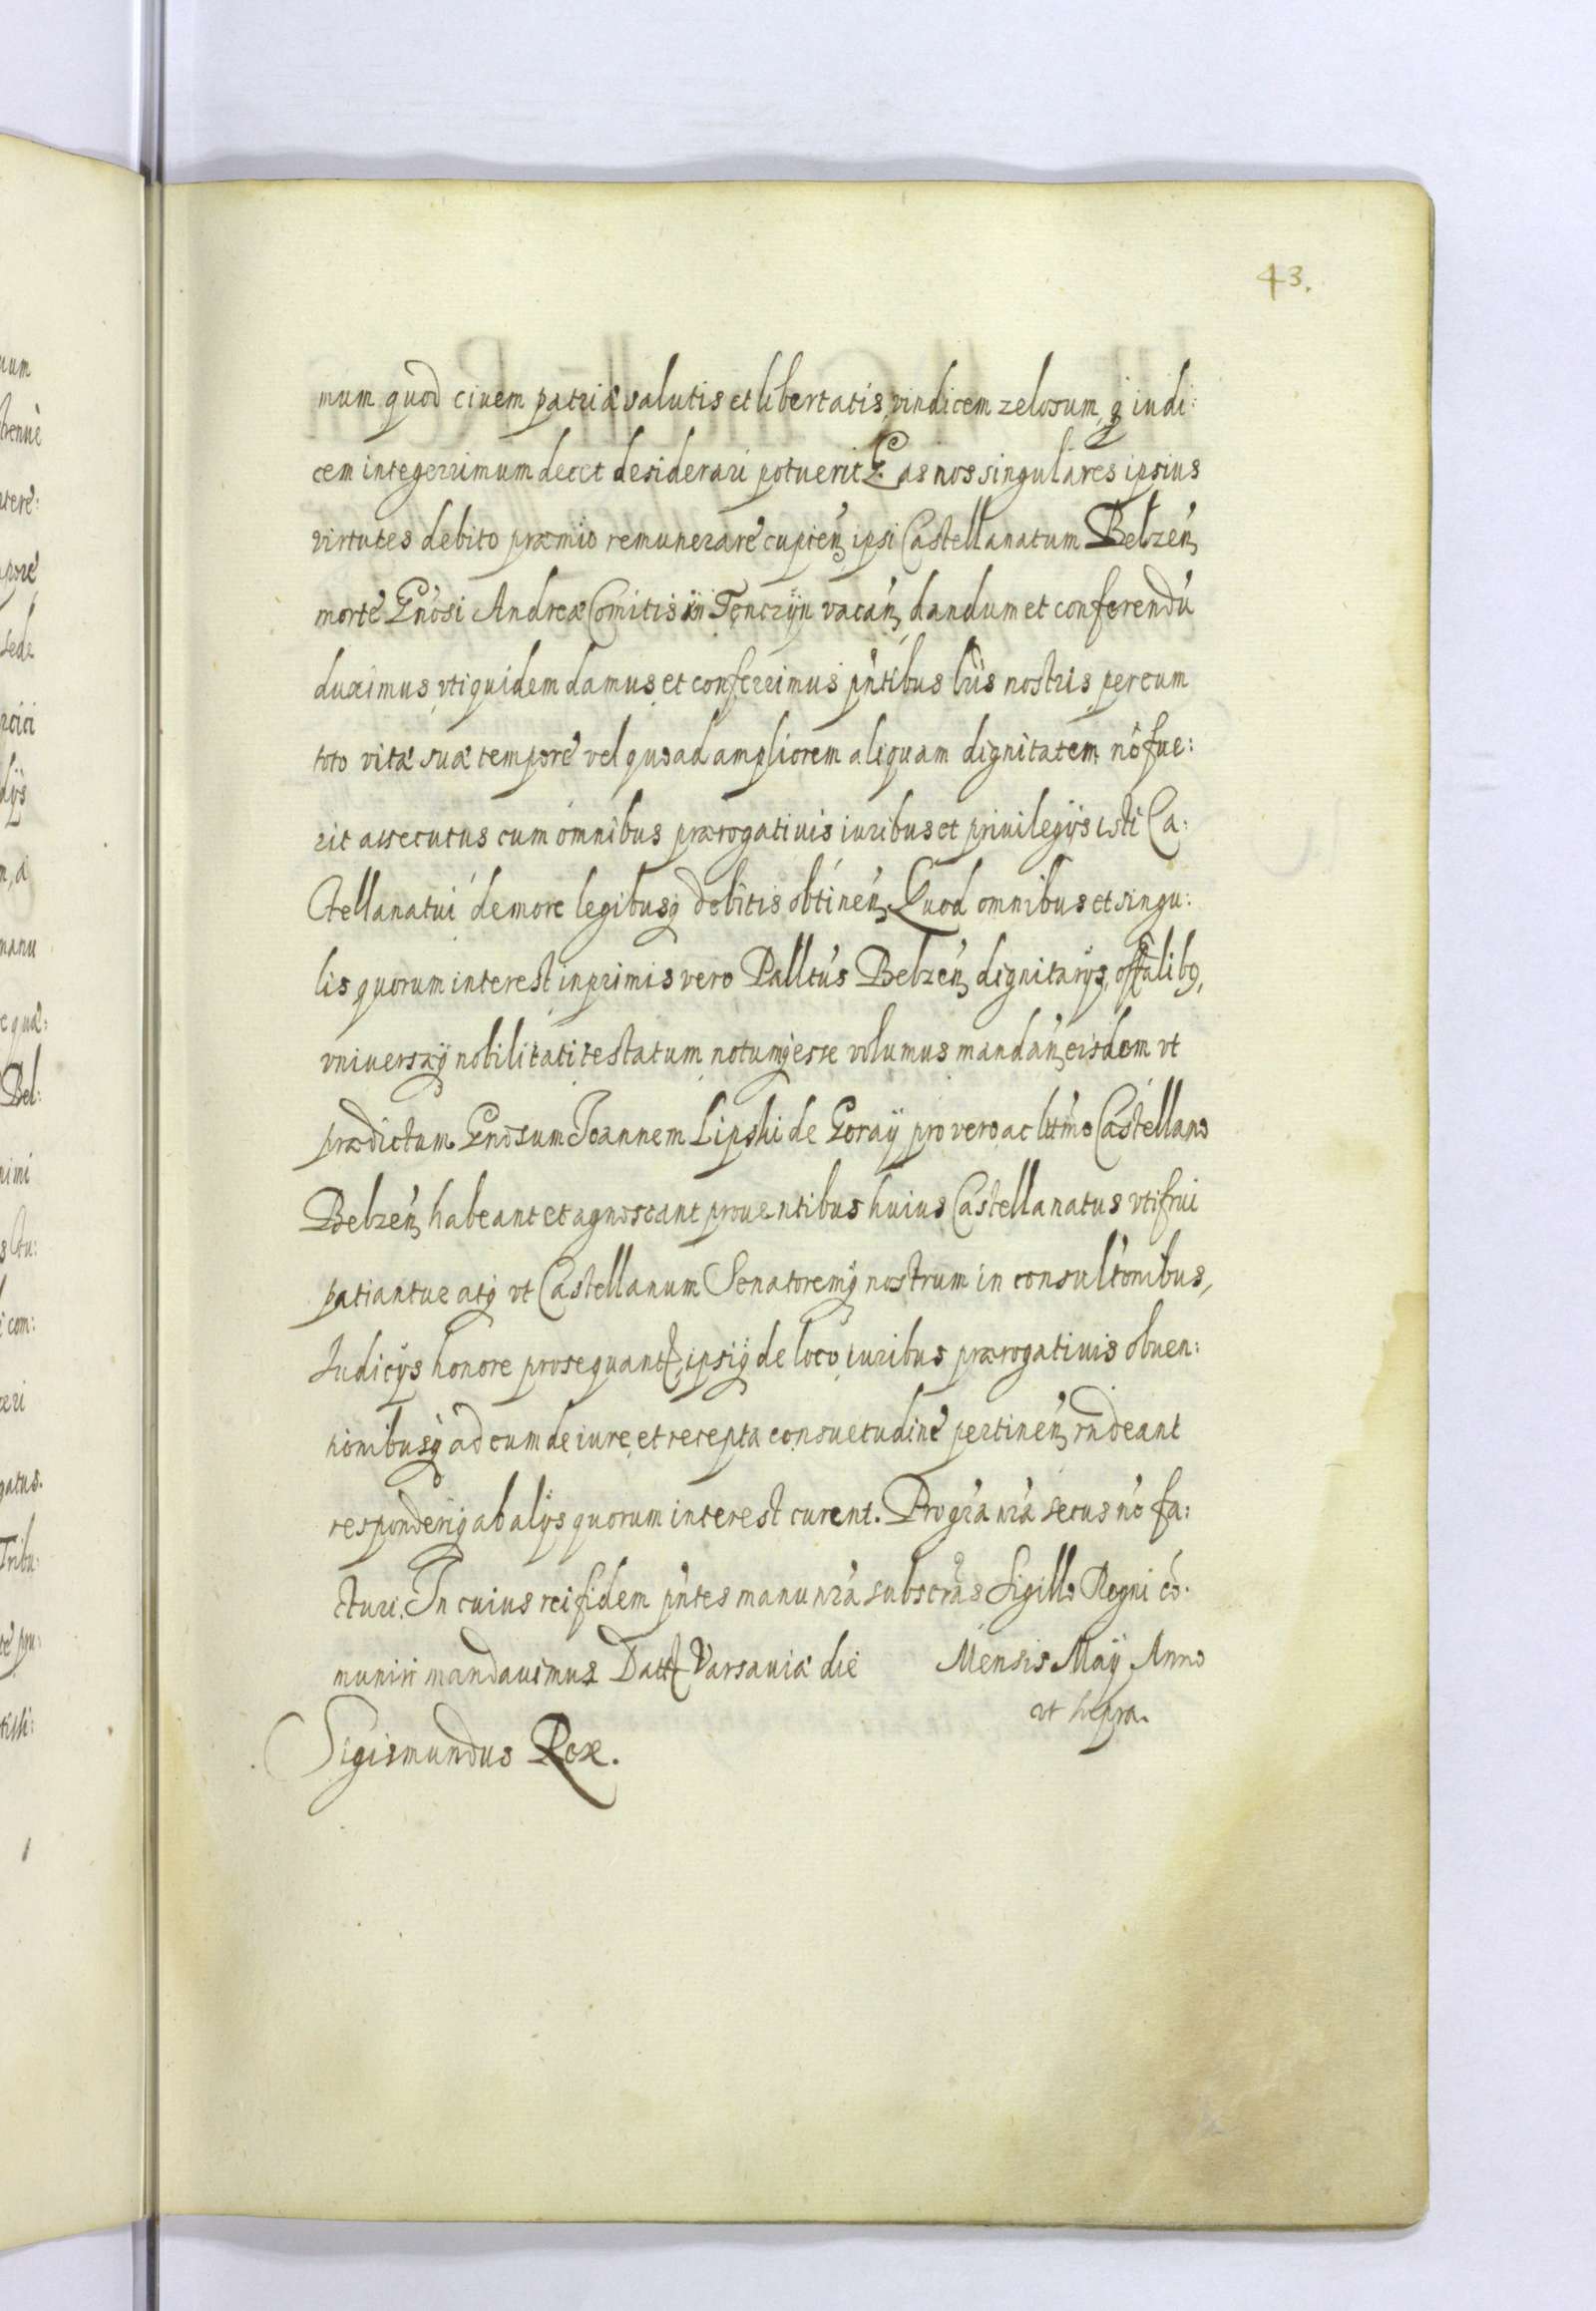 43.
mum quod ciuem patriæ salutis et libertatis vindicem zelosum, q iudi:
cem integerrimum decet desiderari potuerit. Eas nos singulares ipsius
virtutes debito præmio remunerare cupień ipsi Castellanatum Belzeń
morte Gnosi Andreæ Comitis in Tenczÿn vacań, dandum et conferendu
duximus, vti quidem damus et conferrimus pñtibus lris nostris per eum
toto vitæ suæ tempore vel quoad ampliorem aliquam dignitatem no fue:
rit assecutus cum omnibus prærogatiuis iuribus et priuilegÿs isti Ca:
stellanatui de more legibusq debitis obtineń. Quod omnibus et singu:
lis quorum interest inprimis vero Palltus Belzeń dignitarÿs, offtialib9,
vniversæq nobilitati testatum notumq esse volumus mandań eisdem vt
prædictum Gnosum Joannem Lipski de Goraÿ pro vero ac lttmo Castellano
Belzeń habeant et agnoscant prouentibus huius Castellanatus vti frui
patiantur atq vt Castellanum Senatoremq nostrum in consultonibus,
Judicÿs honore prosequantr, ipsiq de loco iuribus prærogatiuis obuen:
tionibusq ad eum de iure et recepta consuetudine pertineń rndeant
responderiq ab alÿs quorum interest curent. Pro gra nra secus no fa:
cturi. In cuius rei fidem pñtes manu nra subscras Sigillo Regni co
muniri mandauimus Datt Varsauiæ die Mensis Maÿ Anno
vt supra.
Sigismundus Rex.